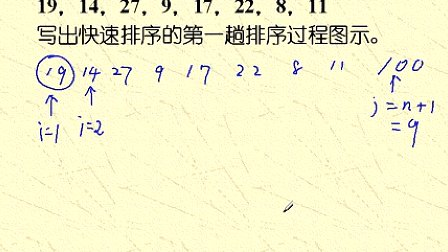 19，14，27，9，17，22，8，11
写出快速排序的第一趟排序过程图示。
19 14 27 9 17 22 8 11 100
i=1 i=2 j=n+1
=9